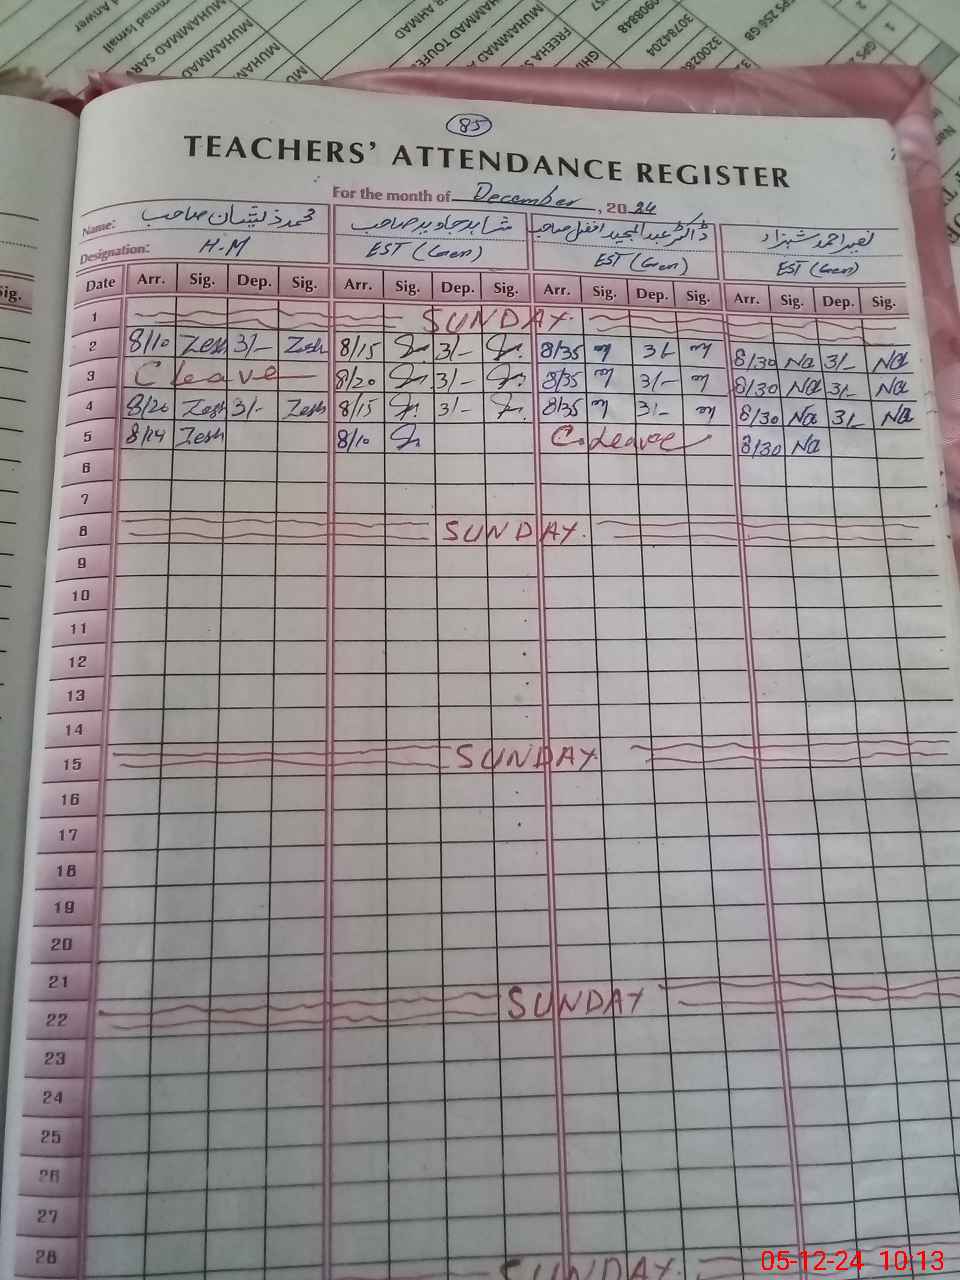 Anwer
mmad Ismail
MUHAMMAD SAR
MUHAMMAD
MUHAMMAD TOUFE
R AHMAD
MUHAMMAD A
FREEHA S
GHU
0908848
30784204
320028
PS 256 GB
GPS 2
1
2
85
TEACHERS' ATTENDANCE REGISTER
For the month of December, 2024
Name: محمد ذیشان صاحب شاہد جاوید صاحب ڈاکٹر عبدالمجید افضل صاحب نصیر احمد شہزاد
Designation: H.M EST (Gen) EST (Gen) EST (Gen)
Date Arr. Sig. Dep. Sig. Arr. Sig. Dep. Sig. Arr. Sig. Dep. Sig. Arr. Sig. Dep. Sig.
1 SUNDAY
2 8/10 Zesh 3/- Zesh 8/15 3/- 8/35 3/- 8/30 Na 3/- Na
3 C Leave 8/20 3/- 8/35 3/- 8/30 Na 3/- Na
4 8/20 Zesh 3/- Zesh 8/15 3/- 8/35 3/- 8/30 Na 3/- Na
5 8/14 Zesh 8/10 C. Leave 8/30 Na
6
7
8 SUNDAY
9
10
11
12
13
14
15 SUNDAY
16
17
18
19
20
21
22 SUNDAY
23
24
25
26
27
28 SUNDAY
05-12-24 10:13